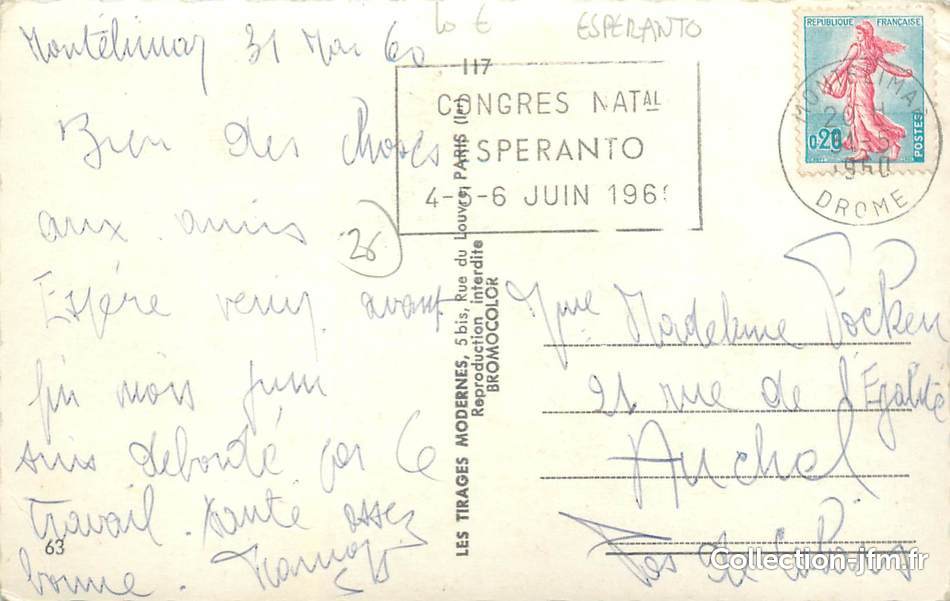 10 €
ESPERANTO
Montélimar 31 Mai 60
Bien des choses
aux amis
Espère venir avant
fin mois juin
suis débordé par le
travail. Santé assez
bonne.
26
63
117
CONGRES NATAL
ESPERANTO
4-5-6 JUIN 196
LES TIRAGES MODERNES, 5 bis, Rue du Louvre, PARIS (Ier)
Reproduction interdite
BROMOCOLOR
REPUBLIQUE FRANÇAISE
0,20
POSTES
MONTELIMAR
1960
DROME
Mme Madeleine
21 rue de l'Egalité
Auchel
Pas de Calais
Collection-jfm.fr